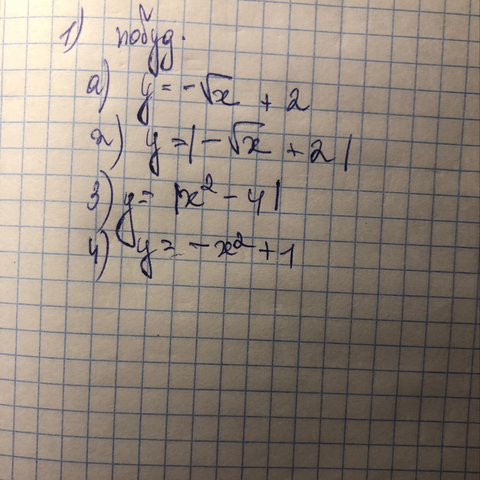 1) побуд.
a) y = -√x + 2
2) y = |-√x + 2|
3) y = |x² - 4|
4) y = -x² + 1